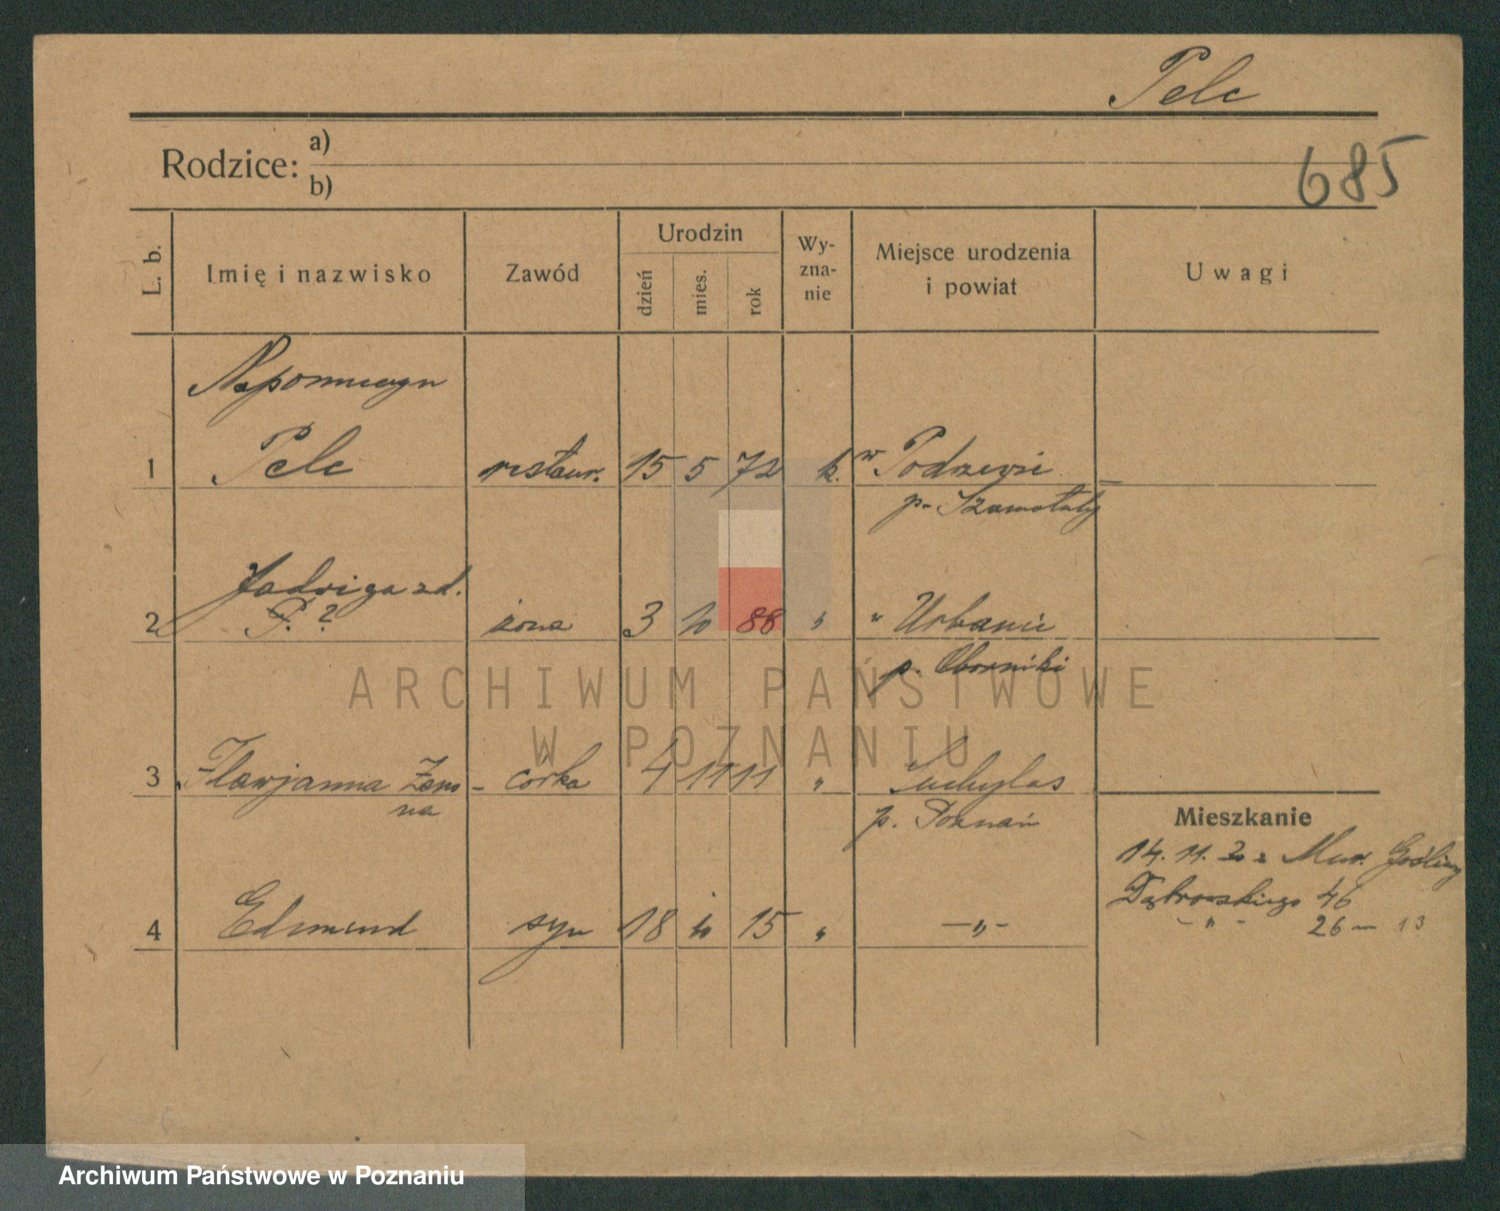 Pelc
685
Rodzice: a)
b)
L. b. Imię i nazwisko Zawód Urodzin dzień mies. rok Wyznanie Miejsce urodzenia i powiat Uwagi
Nepomucyn
1 Pelc restaur. 15 5 72 k. w Podrzewie
p. Szamotuły
Jadwiga zd.
2 P. ? żona 3 10 88 " " Urbanie
p. Oborniki
3 Flawjanna córka 4 11 11 " Suchylas
na p. Poznań
Mieszkanie
14. 11. 20 z Mur. Gośliny
Dąbrowskiego 46
4 Edmund syn 18 10 15 " —"—
— " — 26 m 13
ARCHIWUM PAŃSTWOWE
W POZNANIU
Archiwum Państwowe w Poznaniu